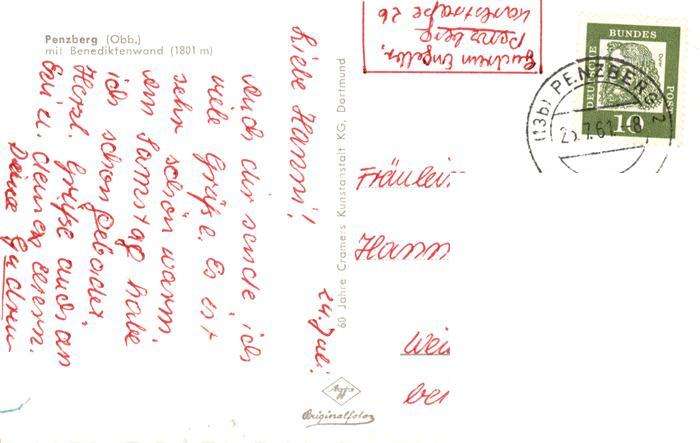 Penzberg (Obb.)
mit Benediktenwand (1801 m)
24. Juli
Liebe Hanni!
Auch dir sende ich
viele Grüße. Es ist
sehr schön warm.
Am Samstag habe
ich schon gebadet
Herzl. Grüße auch an
Evi u. deine Eltern.
Deine Gudrun
60 Jahre Cramers Kunstanstalt KG, Dortmund
Agfa
Originalfoto
Gudrun
Penzberg
Karlstraße 26
DEUTSCHE BUNDESPOST
10
(13b) PENZBERG 2
7.61-8
Fräulein
Hann
Wei
bei